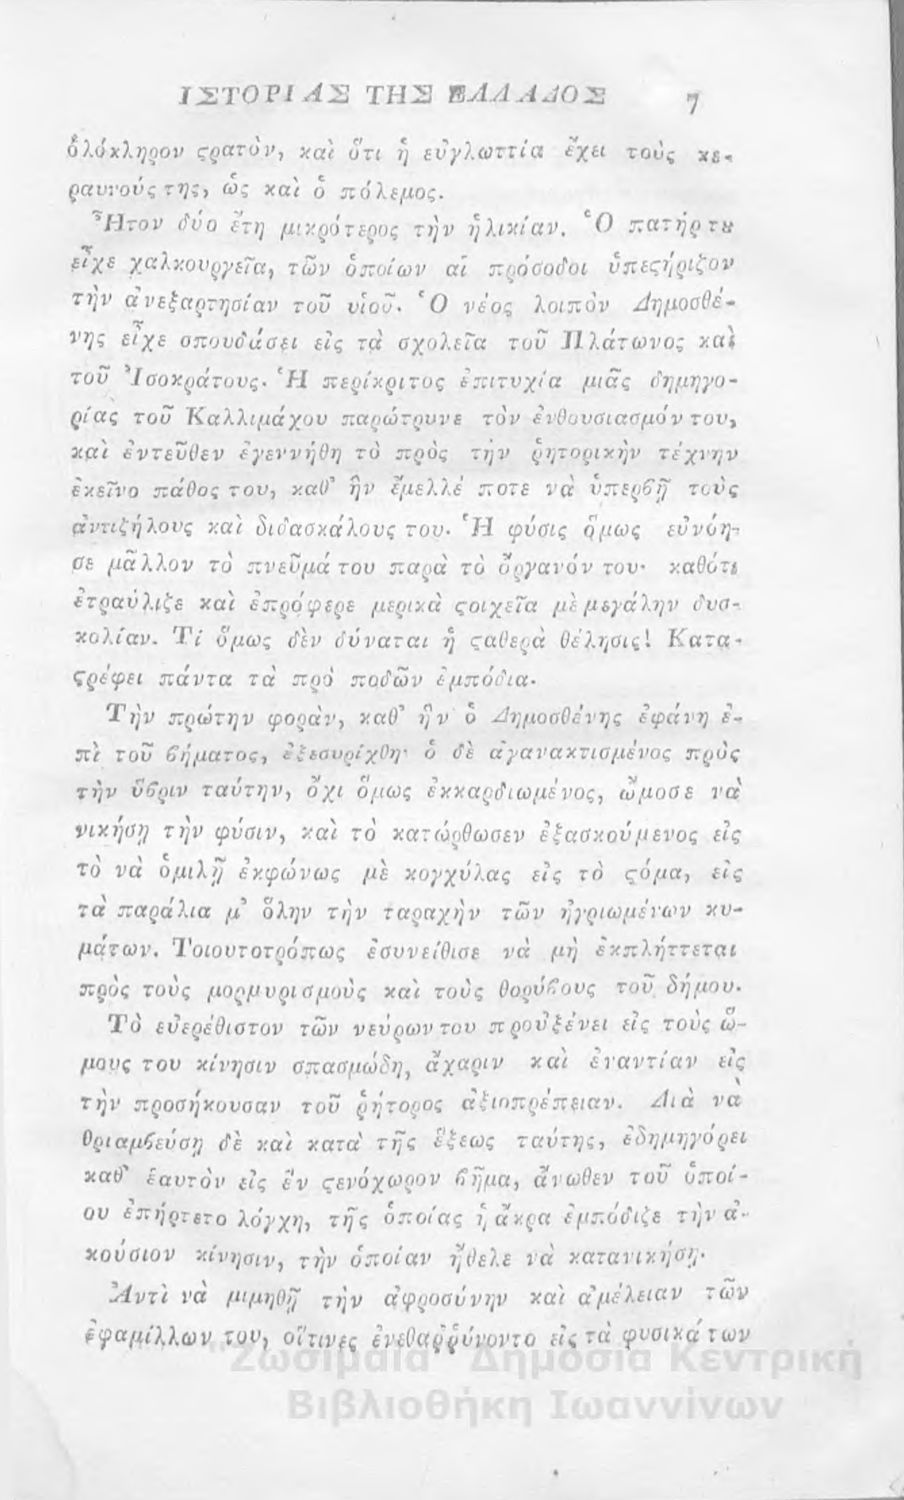 ΙΣΤΟΡΙΑΣ ΤΗΣ ΕΛΛΑΔΟΣ 7
ὁλόκληρον ϛρατὸν, καὶ ὅτι ἡ εὐγλωττία ἔχει τοὺς κε-
ραυνούς της, ὡς καὶ ὁ πόλεμος.
Ἦτον δύο ἔτη μικρότερος τὴν ἡλικίαν. Ὁ πατήρ τȣ
εἶχε χαλκουργεῖα, τῶν ὁποίων αἱ πρόσοδοι ὑπεϛήριζον
τὴν ἀνεξαρτησίαν τοῦ υἱοῦ. Ὁ νέος λοιπὸν Δημοσθέ-
νης εἶχε σπουδάσει εἰς τὰ σχολεῖα τοῦ Πλάτωνος καὶ
τοῦ Ἰσοκράτους. Ἡ περίκριτος ἐπιτυχία μιᾶς δημηγο-
ρίας τοῦ Καλλιμάχου παρώτρυνε τὸν ἐνθουσιασμόν του,
καὶ ἐντεῦθεν ἐγεννήθη τὸ πρὸς τὴν ῥητορικὴν τέχνην
ἐκεῖνο πάθος του, καθ' ἣν ἔμελλέ ποτε νὰ ὑπερβῇ τοὺς
ἀντιζήλους καὶ διδασκάλους του. Ἡ φύσις ὅμως εὐνόη-
σε μᾶλλον τὸ πνεῦμά του παρὰ τὸ ὄργανόν του· καθότι
ἐτραύλιζε καὶ ἐπρόφερε μερικὰ ϛοιχεῖα μὲ μεγάλην δυσ-
κολίαν. Τί ὅμως δὲν δύναται ἡ ϛαθερὰ θέλησις! Κατα-
ϛρέφει πάντα τὰ πρὸ ποδῶν ἐμπόδια.
Τὴν πρώτην φορὰν, καθ' ἣν ὁ Δημοσθένης ἐφάνη ἐ-
πὶ τοῦ βήματος, ἐξεσυρίχθη· ὁ δὲ ἀγανακτισμένος πρὸς
τὴν ὕβριν ταύτην, ὄχι ὅμως ἐκκαρδιωμένος, ὤμοσε νὰ
νικήσῃ τὴν φύσιν, καὶ τὸ κατώρθωσεν ἐξασκούμενος εἰς
τὸ νὰ ὁμιλῇ ἐκφώνως μὲ κογχύλας εἰς τὸ ϛόμα, εἰς
τὰ παράλια μ' ὅλην τὴν ταραχὴν τῶν ἠγριωμένων κυ-
μάτων. Τοιουτοτρόπως ἐσυνείθισε νὰ μὴ ἐκπλήττεται
πρὸς τοὺς μορμυρισμοὺς καὶ τοὺς θορύβους τοῦ δήμου.
Τὸ εὐερέθιστον τῶν νεύρων του προὐξένει εἰς τοὺς ὤ-
μους του κίνησιν σπασμώδη, ἄχαριν καὶ ἐναντίαν εἰς
τὴν προσήκουσαν τοῦ ῥήτορος ἀξιοπρέπειαν. Διὰ νὰ
θριαμβεύσῃ δὲ καὶ κατὰ τῆς ἕξεως ταύτης, ἐδημηγόρει
καθ' ἑαυτὸν εἰς ἓν ϛενόχωρον βῆμα, ἄνωθεν τοῦ ὁποί-
ου ἐπήρτετο λόγχη, τῆς ὁποίας ἡ ἄκρα ἐμπόδιζε τὴν ἀ-
κούσιον κίνησιν, τὴν ὁποίαν ἤθελε νὰ κατανικήσῃ.
Ἀντὶ νὰ μιμηθῇ τὴν ἀφροσύνην καὶ ἀμέλειαν τῶν
ἐφαμίλλων του, οἵτινες ἐνεθαῤῥύνοντο εἰς τὰ φυσικά των
"Ζωσιμαία" Δημόσια Κεντρική
Βιβλιοθήκη Ιωαννίνων